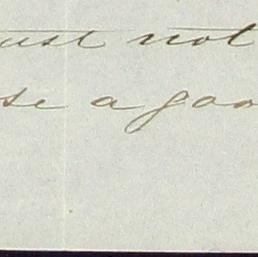 ust not
se a goo